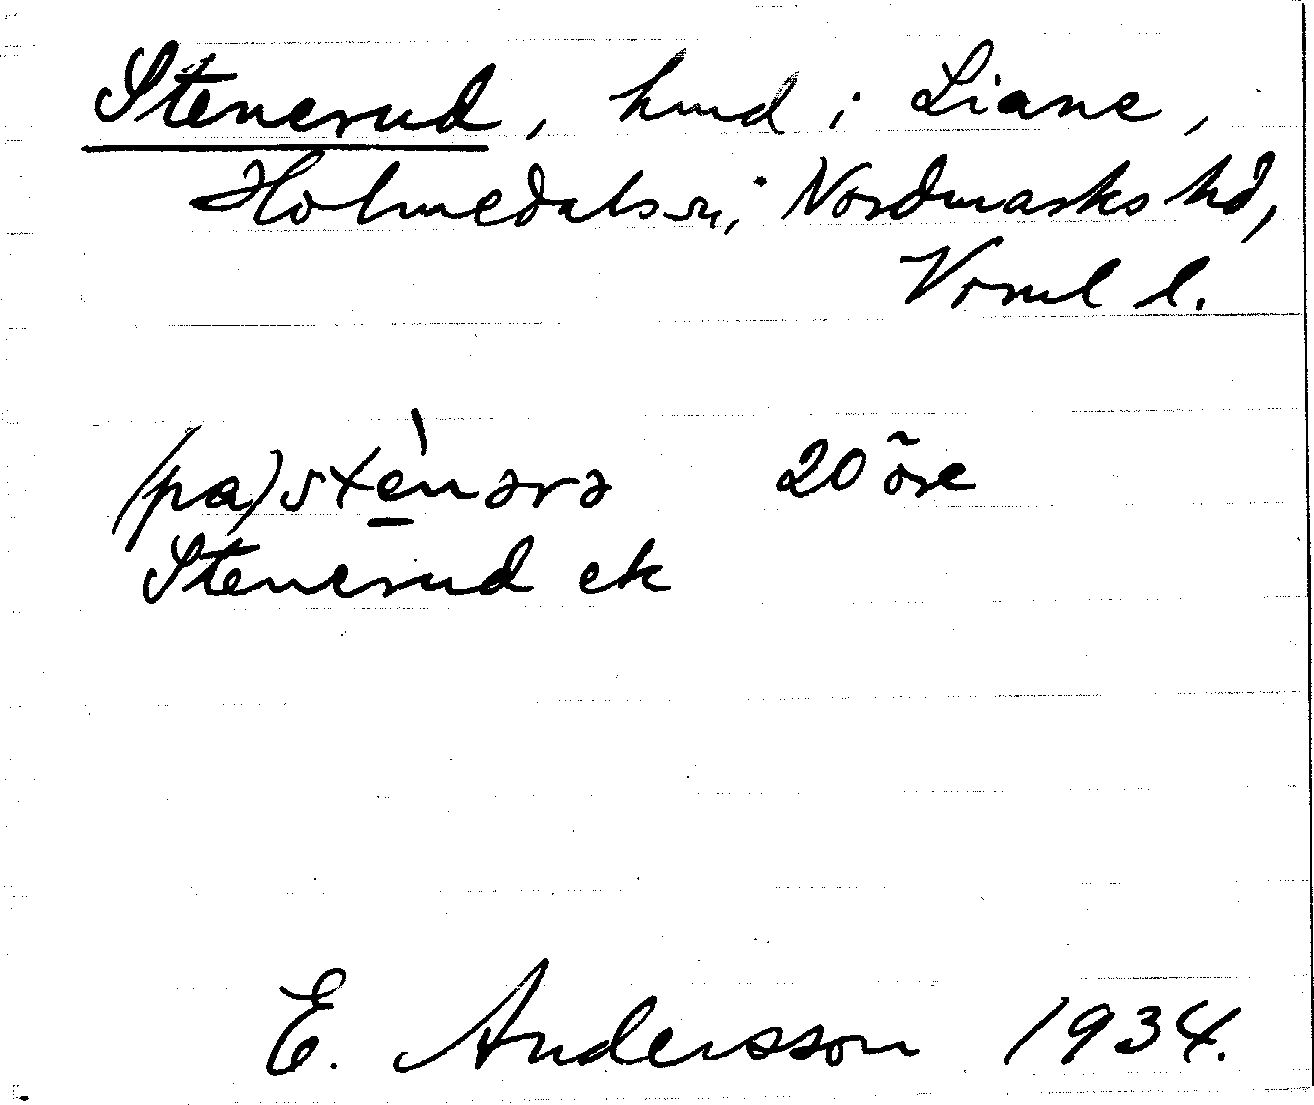 Stenerud, hmd i Liane,
Holmedals sn, Nordmarks hd,
Vrml l.
(pa) stènərə 20 öre
Stenerud ek
E. Andersson 1934.